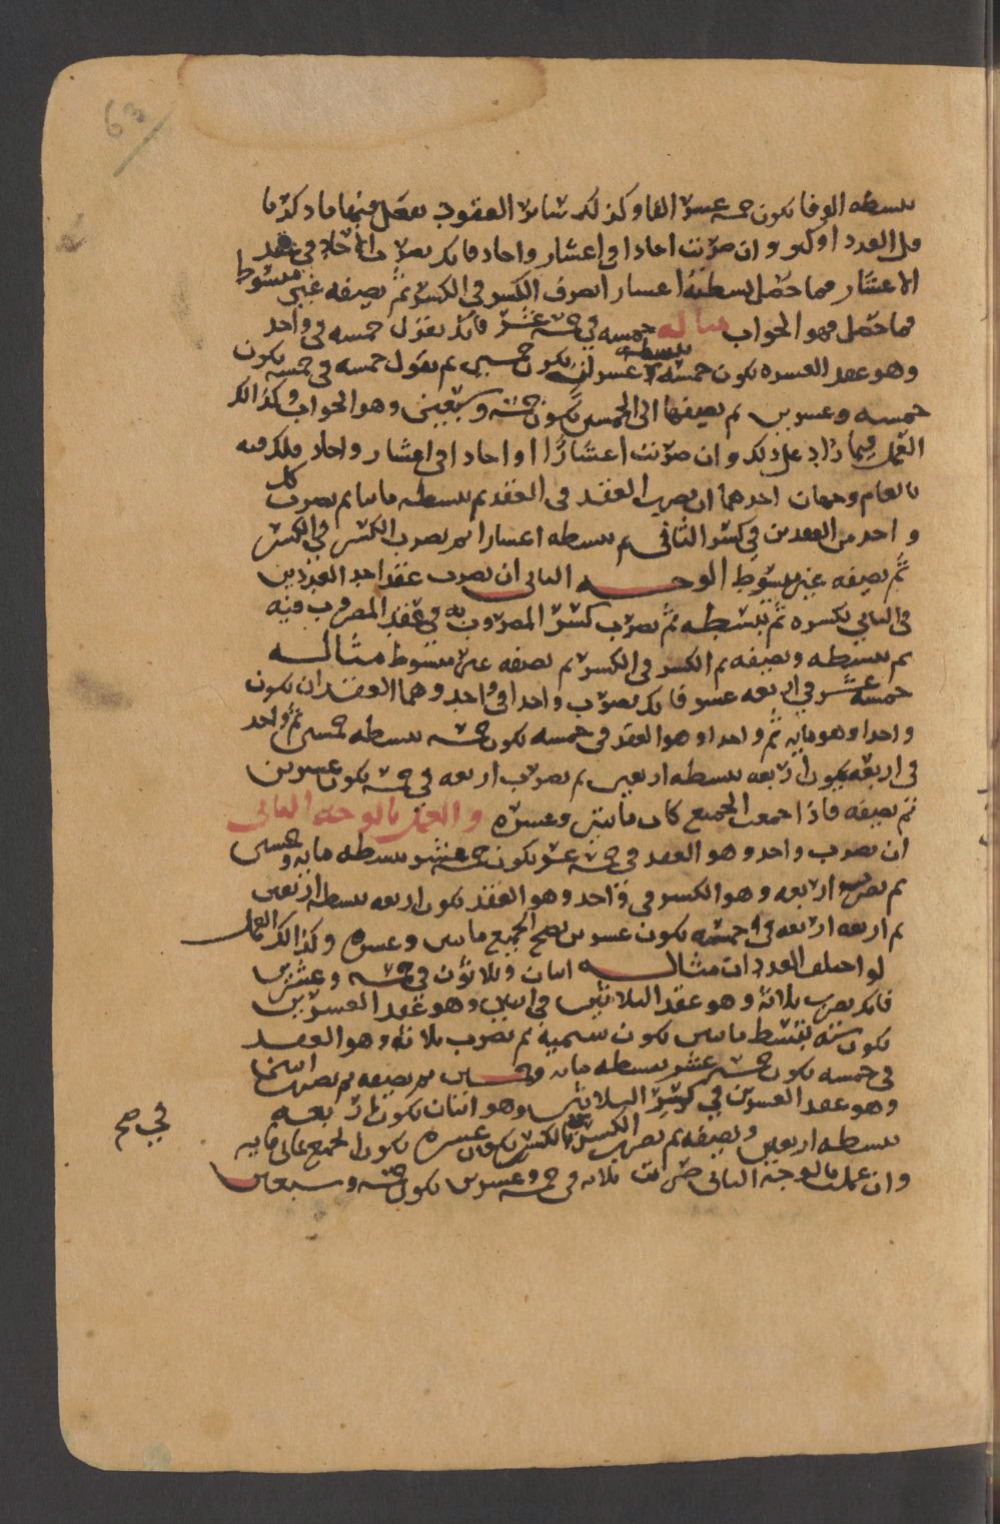 63
تبسطه الوفا يكون خمسة عشر الفا وكذلك سائر العقود تعمل فيها ما ذكرنا
قبل العدد اوكثر وان ضربت احادا في اعشار واحاد فانك تضرب الاحاد في عقد
الاعشار فما حصل بسطته اعشارا تضرب الكسر في الكسر ثم تضيفه غير مبسوط
فما حصل فهو الجواب مثاله خمسه في خمسة عشر فانك تقول خمسه في واحد
وهو عقد العشره يكون خمسه تبسطه يكون خمسين ثم تقول خمسه في خمسه يكون
خمسه وعشرين ثم تضيفها الى الخمسين يكون خمسة وسبعين وهو الجواب وكذالك
العمل فيما زاد على ذلك وان ضربت اعشارا او احادا في اعشار واحاد فلك فيه
بالعام وجهان احدهما ان تضرب العقد في العقد ثم تبسطه مايىا ثم تضرب كل
واحد من العقدين في كسر الثاني ثم تبسطه اعشارا ثم تضرب الكسر في الكسر
ثم تضيفه غير مبسوط الوجه الثاني ان تضرب عقد احد العددين
في الثاني بكسره ثم تبسطه ثم تضرب كسر المضروب به في عقد المضروب فيه
ثم تبسطه وتضيفه ثم الكسر في الكسر ثم تضيفه غير مبسوط مثاله
خمسة عشر في اربعه عشر فانك تضرب واحدا في واحد وهما العقدان يكون
واحدا وهو مايه ثم واحدا وهو العقد في خمسه يكون خمسه تبسطه خمسين ثم واحد
في اربعه يكون اربعه تبسطه اربعين ثم تضرب اربعه في خمسه يكون عشرين
ثم تضيفه فاذا جمعت الجميع كان مايتين وعشره والعمل بالوجه الثاني
ان تضرب واحد وهو العقد في خمسة عشر يكون خمسة عشر تبسطه مايه وخمسين
ثم تضرب اربعه وهو الكسر في واحد وهو العقد يكون اربعه تبسطه اربعين
ثم اربعه في خمسه يكون عشرين يصح الجميع مايتين وعشره وكذالك العمل
لو اختلف العددان مثاله اثنان وثلاثون في خمسه وعشرين
فانك تضرب ثلاثة وهو عقد الثلاثين في اثنين وهو عقد العشرين
يكون ستة تبسط مايىن يكون ستمية ثم تضرب ثلاثة وهو العقد
في خمسه يكون خمسة عشر تبسطه مايه وخمسين ثم تضيفه ثم تضرب اثنين
وهو عقد العشرين في كسر الثلاثين وهو اثنان يكون اربعه
تبسطه اربعين وتضيفه ثم تضرب الكسر في الكسر يكون عشره يكون الجميع ثماني مايه
وان عملت بالوجه الثاني ضربت ثلاثه في خمسه وعشرين يكون خمسه وسبعين
في صح